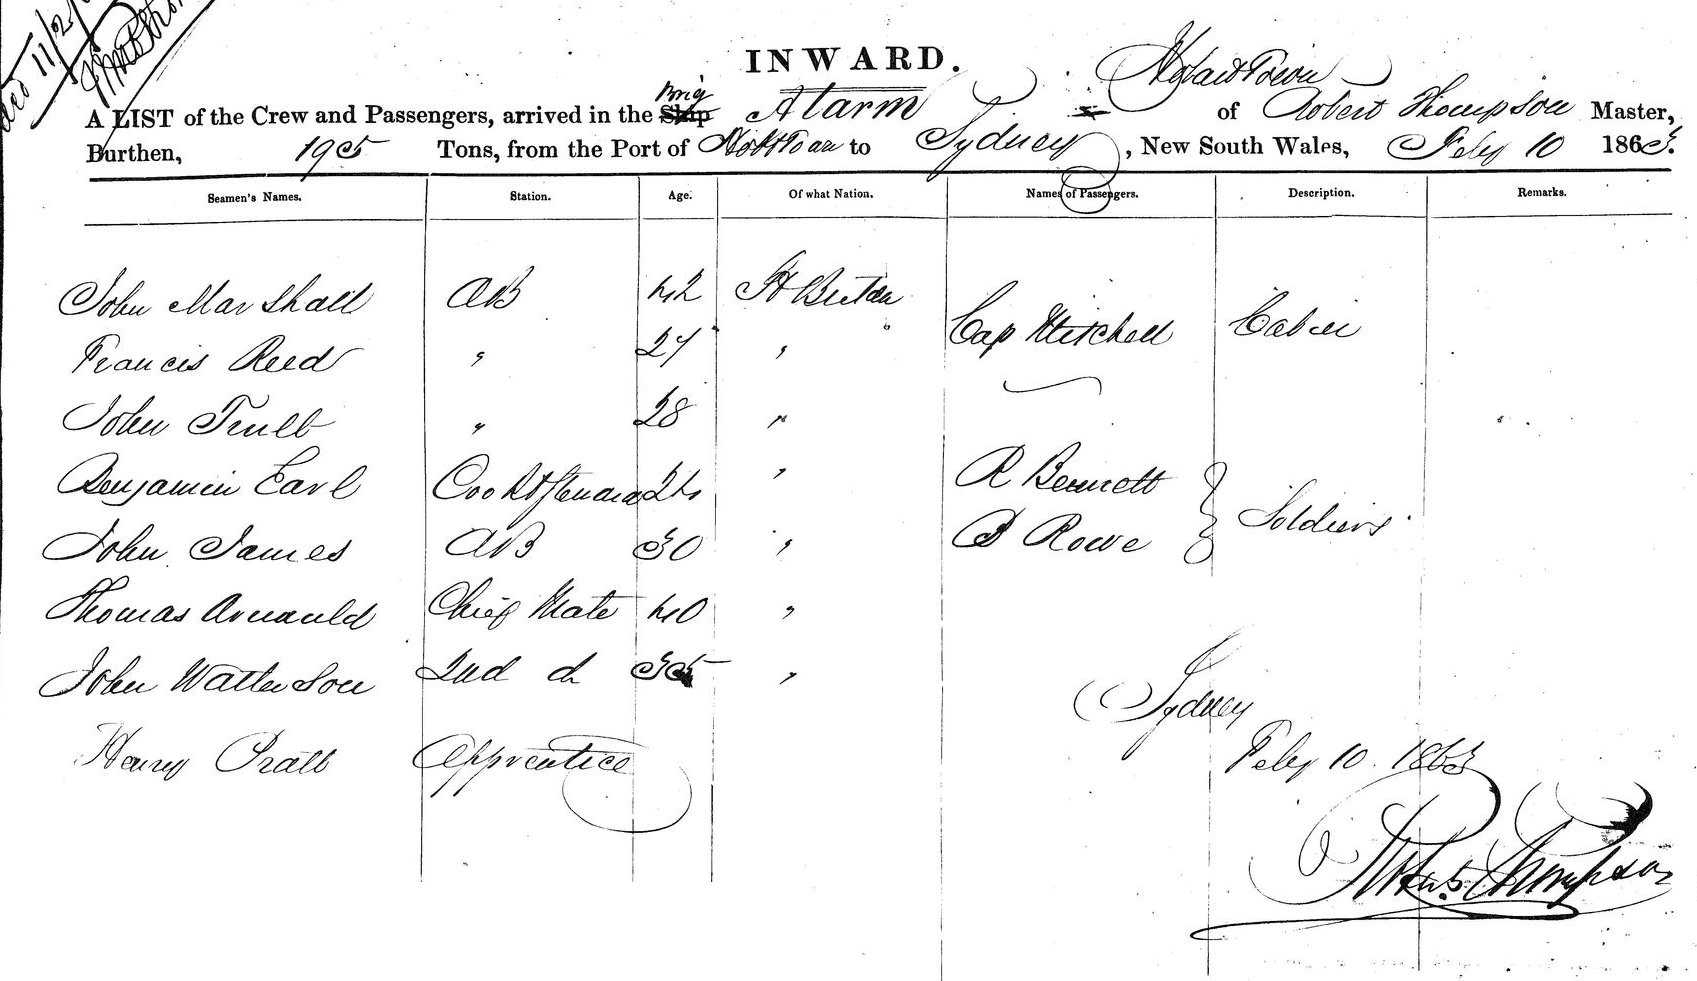 11/2/
INWARD.
Hobart Town
A LIST of the Crew and Passengers, arrived in the Ship Brig Alarm of Robert Thompson Master,
Burthen, 195 Tons, from the Port of to Sydney, New South Wales, Feby 10 1863.
Seamen's Names. Station. Age. Of what Nation. Names of Passengers. Description. Remarks.
John Marshall AB 42 Gt Britain Cap Mitchell Cabin
Francis Reed " 27 "
John Trull " 28 "
Benjamin Earl Cook & Steward 24 " R Bennett
John James AB 30 " D Rowe } Soldiers
Thomas Arnauld Chief Mate 40 "
John Watterson 2nd do 35 " Sydney
Henry Pratt Apprentice Feby 10. 1863
Robert Thompson